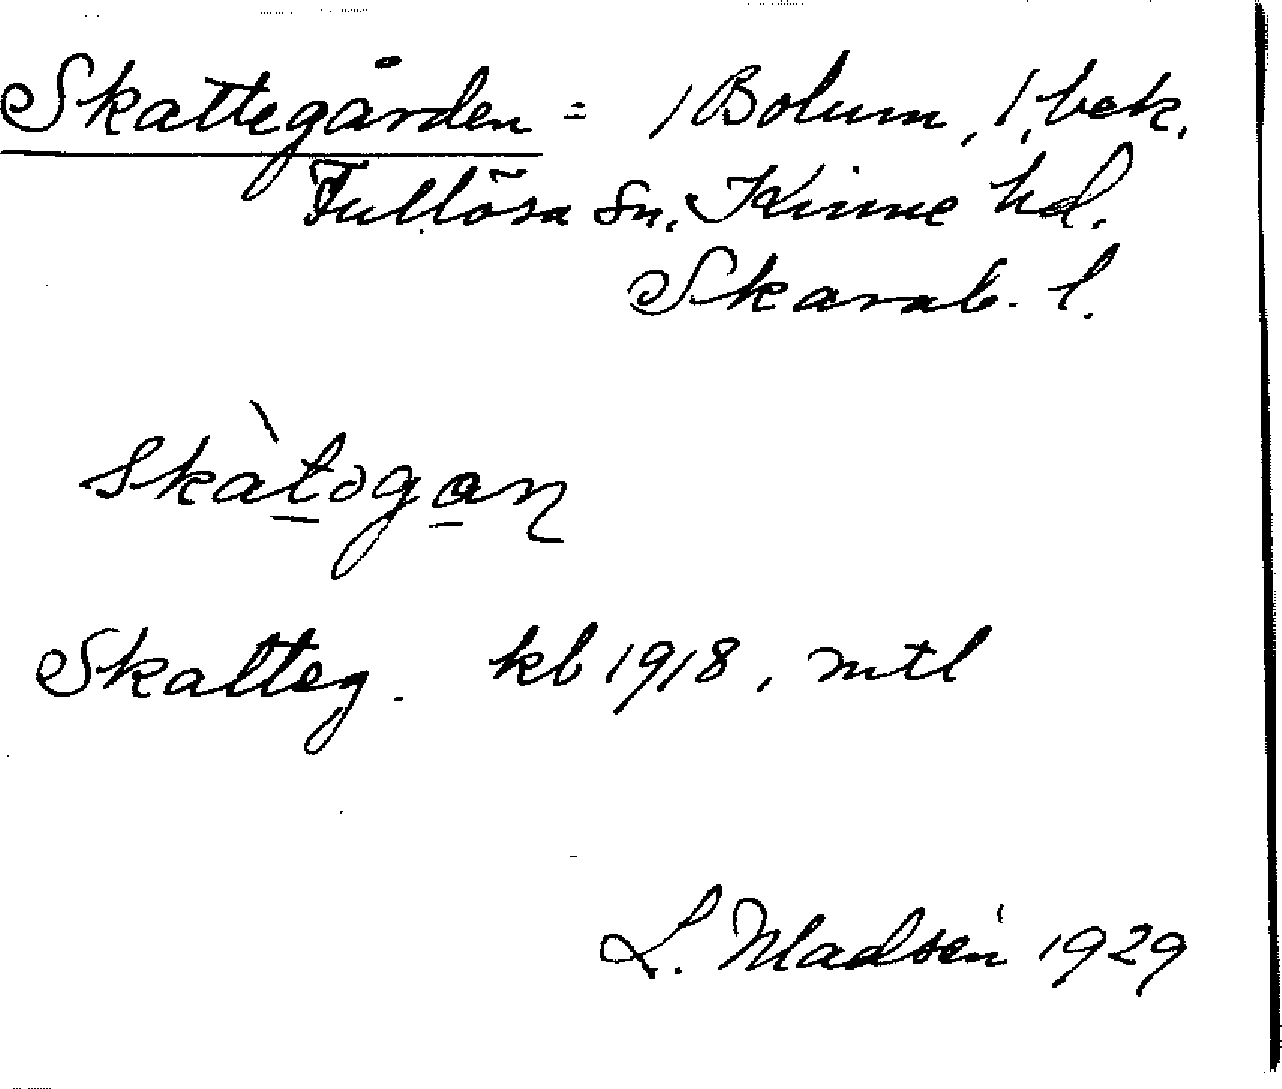 Skattegården = 1 Bolum, 1, bek.
Fullösa sn. Kinne hd.
Skarab. l.
skàtəgaɳ
Skatteg. kb 1918, mtl
L. Madsén 1929